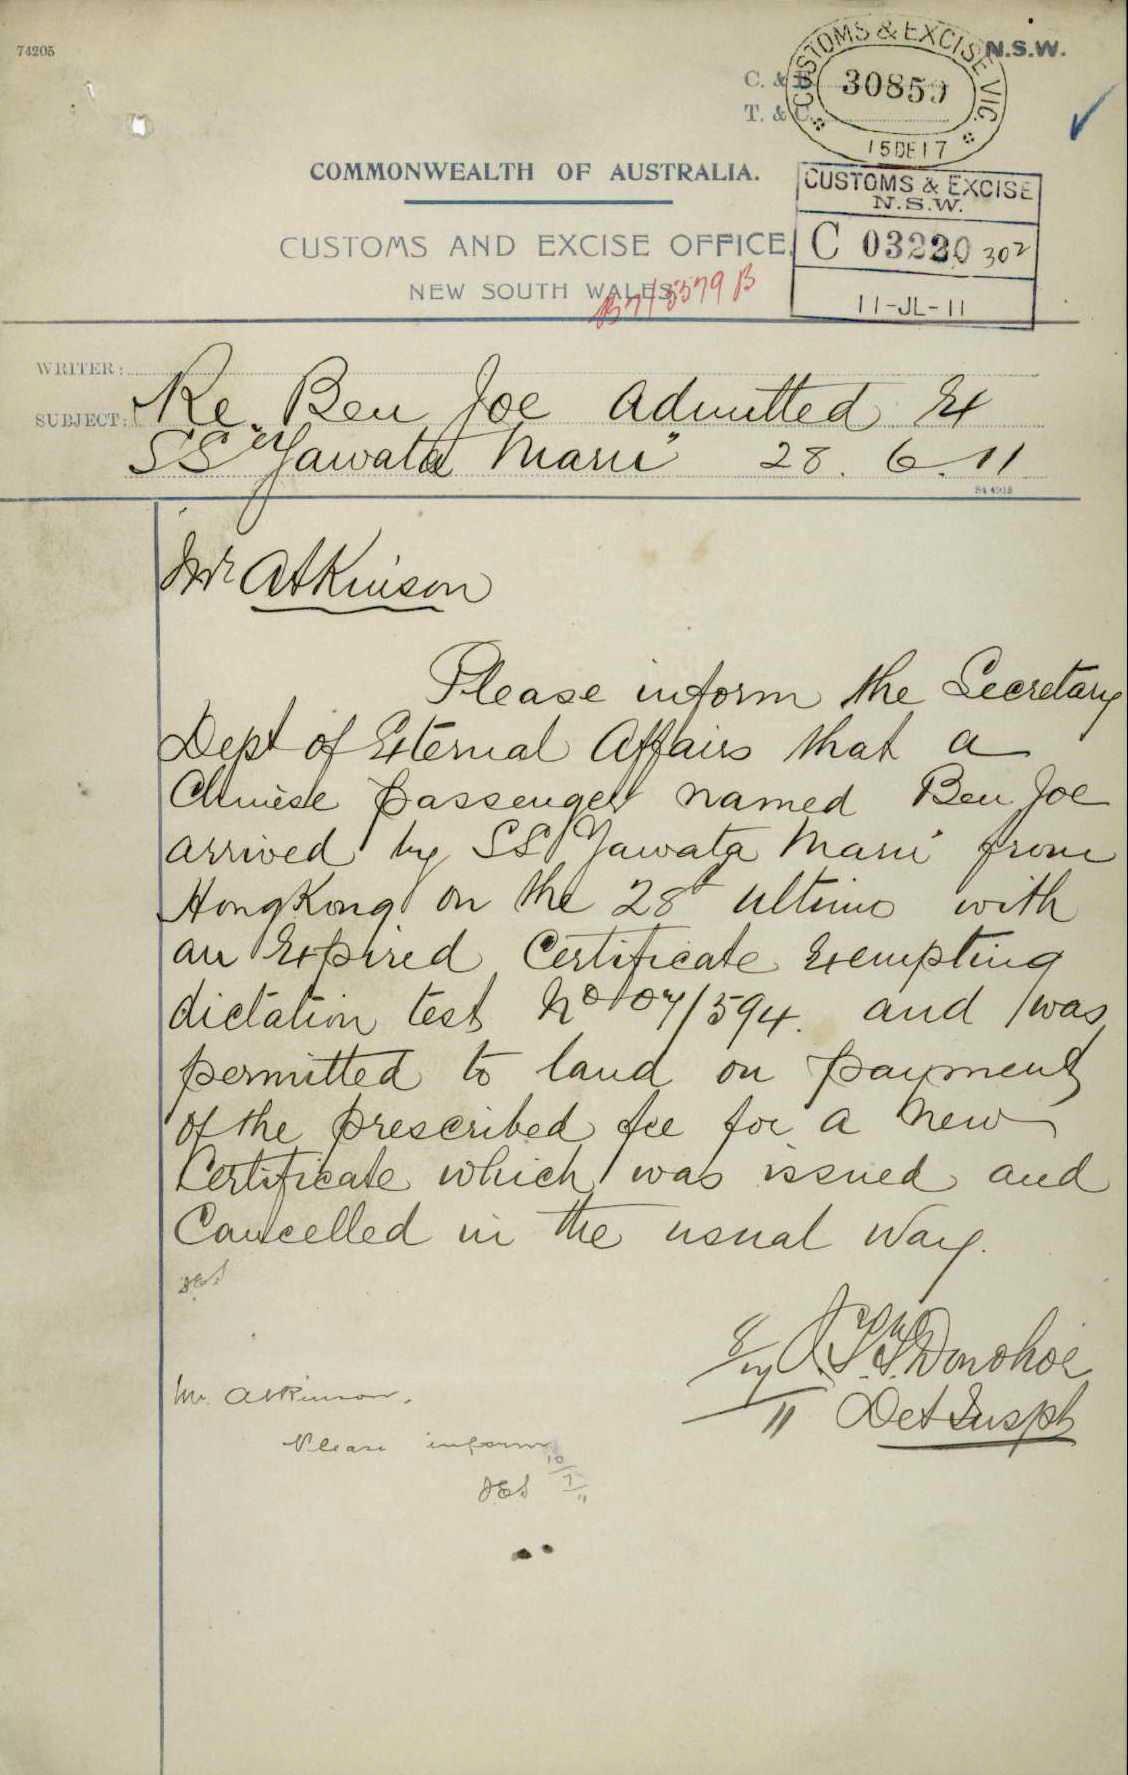 74205
N.S.W.
CUSTOMS & EXCISE VIC.
C. & E.
30859
T. & C.
15DE17
COMMONWEALTH OF AUSTRALIA.
CUSTOMS & EXCISE
N.S.W.
CUSTOMS AND EXCISE OFFICE,
C 03220 302
NEW SOUTH WALES
11-JL-11
WRITER:
SUBJECT: Re Ben Joe admitted Ex
SS "Yawata Maru" 28.6.11
Mr Atkinson
Please inform the Secretary
Dept of External Affairs that a
Chinese passenger named Ben Joe
arrived by SS "Yawata Maru" from
HongKong on the 28th ultimo with
an Expired Certificate Exempting
dictation test No 07/594. and was
permitted to land on payment
of the prescribed fee for a new
Certificate which was issued and
Cancelled in the usual way.
Donohoe
8/7/11 Det Inspr
Mr. Atkinson.
Please inform
10/7/11